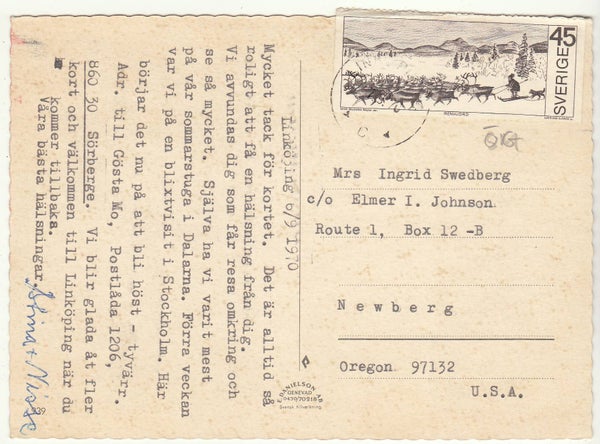 Linköping 6/9 1970
Mycket tack för kortet. Det är alltid så
roligt att få en hälsning från dig.
Vi avvundas dig som får resa omkring och
se så mycket. Själva ha vi varit mest
på vår sommarstuga i Dalarna. Förra veckan
var vi på en blixtvisit i Stockholm. Här
börjar det nu på att bli höst - tyvärr.
Adr. till Gösta Mo, Postlåda 1206,
860 30 Sörberge. Vi blir glada åt fler
kort och välkommen till Linköping när du
kommer tillbaka.
Våra bästa hälsningar.
Stina + Nisse
SVERIGE 45
RENHJORD
Mrs Ingrid Swedberg
c/o Elmer I. Johnson
Route 1, Box 12 -B
Newberg
Oregon 97132
U.S.A.
E. DANIELSON AB
GENEVAD
0430/70218
Svensk tillverkning